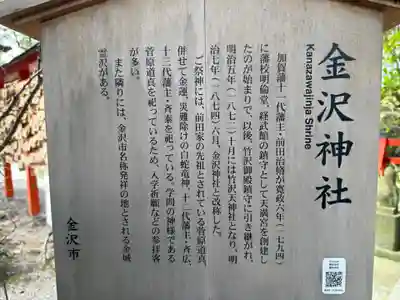 金沢神社
Kanazawajinja Shrine
加賀藩十一代藩主・前田治脩が寛政六年(一七九四)
に藩校明倫堂、経武館の鎮守として天満宮を創建し
たのが始まりで、以後、竹沢御殿鎮守に引き継がれ、
明治五年(一八七二)十月には竹沢天神社となり、明
治七年(一八七四)六月、金沢神社と改称した。
ご祭神には、前田家の先祖とされている菅原道真、
併せて金運、災難除けの白蛇竜神、十二代藩主・斉広、
十三代藩主・斉泰を祀っている。学問の神様である
菅原道真を祀っているため、入学祈願などの参拝客
が多い。
また隣りには、金沢市名称発祥の地とされる金城
霊沢がある。
金沢市